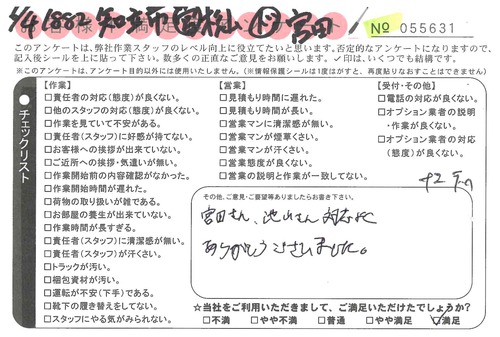 お客様満足度アンケート
No 055631
このアンケートは、弊社作業スタッフのレベル向上に役立てたいと思います。否定的なアンケートになりますので、
記入後シールを上に貼って下さい。数多くの正直なご意見をお願いします。✓印は、いくつでも結構です。
※このアンケートは、アンケート目的以外には使用いたしません。(※情報保護シールは1度はがすと、再度貼りなおすことはできません)
チェックリスト
【作業】
□責任者の対応(態度)が良くない。
□他のスタッフの対応(態度)が良くない。
□作業を見ていて不安がある。
□責任者(スタッフ)に好感が持てない。
□お客様への挨拶が出来ていない。
□ご近所への挨拶・気遣いが無い。
□作業開始前の内容確認がなかった。
□作業開始時間が遅れた。
□荷物の取り扱いが雑である。
□お部屋の養生が出来ていない。
□作業時間が長すぎる。
□責任者(スタッフ)に清潔感が無い。
□責任者(スタッフ)が汗くさい。
□トラックが汚い。
□梱包資材が汚い。
□運転が不安(下手)である。
□靴下の履き替えをしてない。
□スタッフにやる気がみられない。
【営業】
□見積もり時間に遅れた。
□見積もり時間が長い。
□営業マンに清潔感が無い。
□営業マンが煙草くさい。
□営業マンが汗くさい。
□営業態度が良くない。
□営業の説明と作業が一致してない。
【受付・その他】
□電話の対応が良くない。
□オプション業者の説明
・作業が良くない。
□オプション業者の対応
(態度)が良くない。
その他、ご意見・ご要望等ありましたらお書き下さい。
宮田さん、池山さん 対応に
ありがとうございました。
☆当社をご利用いただきまして、ご満足いただけたでしょうか?
□不満 □やや不満 □普通 □やや満足 ☑満足